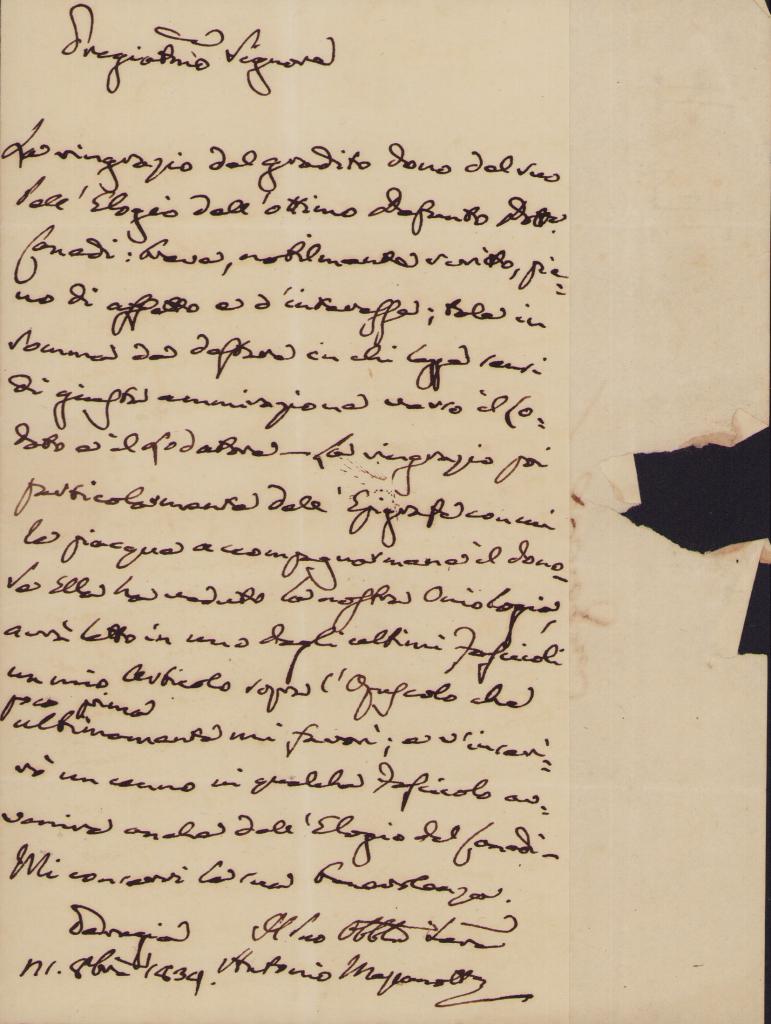 Pregiatmo Signore
La ringrazio del gradito dono del suo
dell'Elogio dell'ottimo Defunto Dottr
Canali: breve, nobilmente scritto, pie=
no di affetto e d'interesse; tale in
somma da destare in chi legge sensi
di giusta ammirazione verso il Lo=
dato e il Lodatore — La ringrazio poi
particolarmente dell'Epigrafe con cui
le piacque accompagnarmene il dono —
Se Ella ha veduto la nostra Oniologia,
avrà letto in uno degli ultimi Fascicoli
un mio Articolo sopra l'Opuscolo che
poco prima
ultimamente mi favorì; e s'inseri=
rà un cenno in qualche Fascicolo av=
venire anche dell'Elogio del Canali —
Mi conservi la sua benevolenza.
Perugia Il Suo Obblmo Servre
8bre 1834. Antonio Mezzanotte